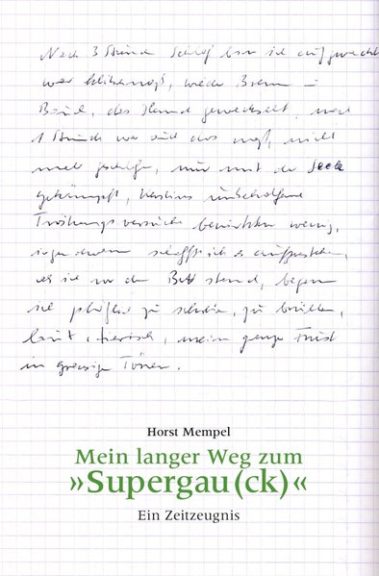 Nach 3 Stunden Schlaf bin ich aufgewacht
war klitschnaß, wieder Brennen i
das Hemd gewechselt,
1 Stunde war auch das naß, nicht
mehr geschlafen, nur mit der Seele
gekämpft,
Tröstungsversuche bewirkten wenig,
schaffte ich es aufzustehen,
als ich vor dem Bett stand, begann
ich plötzlich zu schreien, zu brüllen,
laut, tierisch, mein ganzer Frust
in grausigen Tönen.
Horst Mempel
Mein langer Weg zum
»Supergau(ck)«
Ein Zeitzeugnis